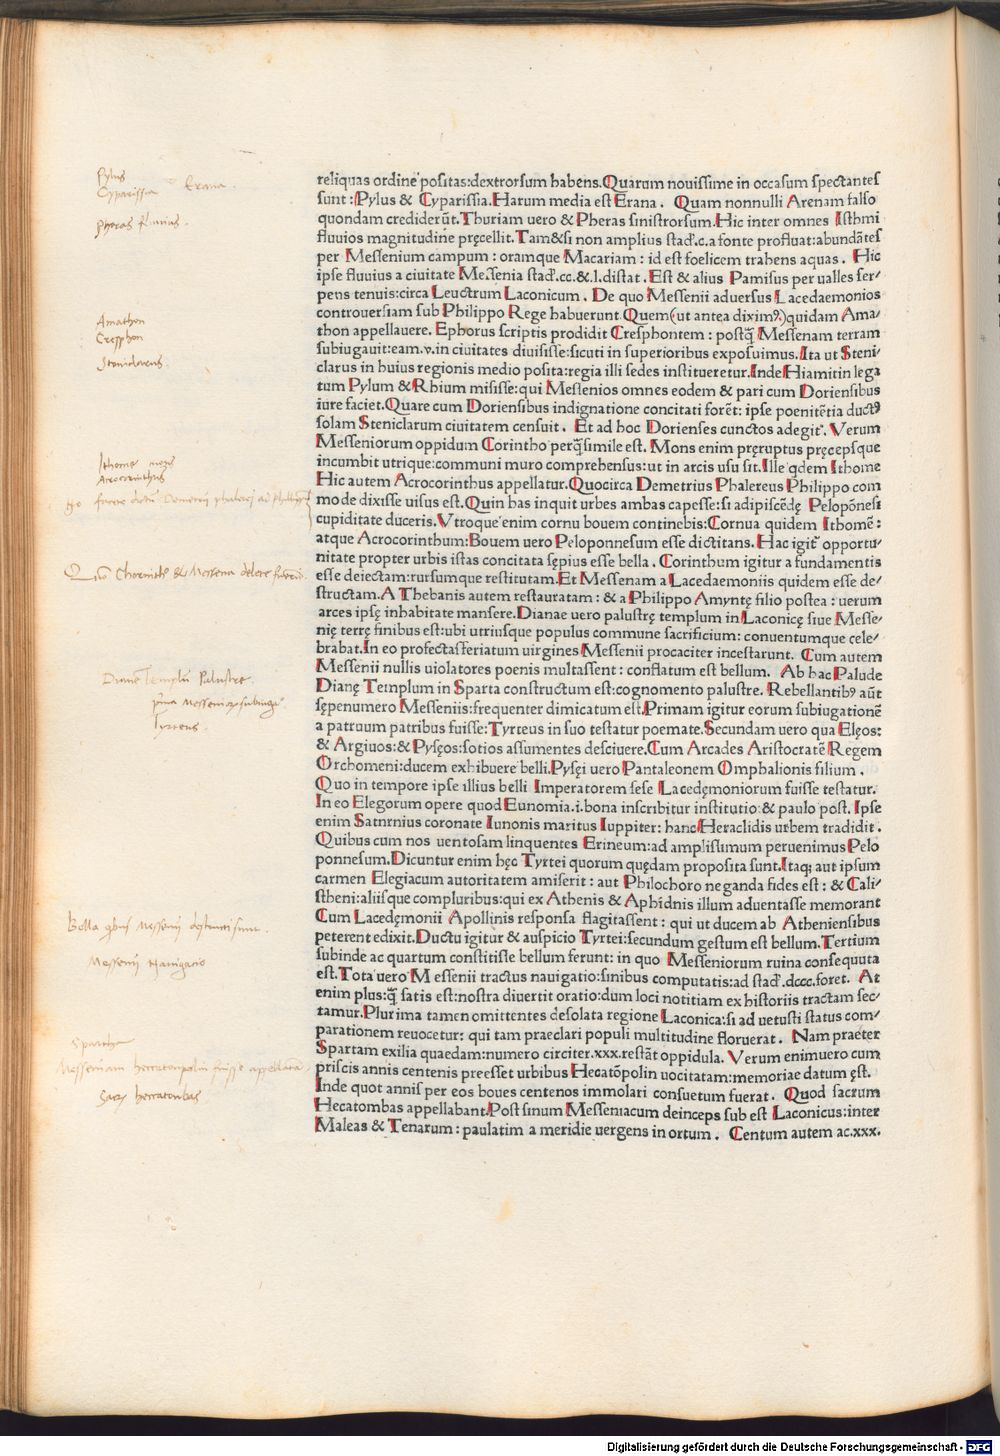 Pylus
Cyparissia Erana.
Pheras fluvius.
Amathon
Cresphon
Steniclarus
Ithome mons
Acrocorinthus
Diane Templū Palustre.
Tyrteus.
Bella
Messenii Navigatio
Spartha
reliquas ordine positas:dextrorsum habens.Quarum nouissime in occasum spectantes
sunt:Pylus & Cyparissia.Harum media est Erana. Quam nonnulli Arenam falso
quondam crediderūt.Thuriam uero & Pheras sinistrorsum.Hic inter omnes Isthmi
fluuios magnitudine pręcellit.Tam&si non amplius stad.c.a fonte profluat:abundātes
per Messenium campum: oramque Macariam: id est foelicem trahens aquas. Hic
ipse fluuius a ciuitate Messenia stad.cc.&.l.distat. Est & alius Pamisus per ualles ser/
pens tenuis:circa Leuctrum Laconicum. De quo Messenii aduersus Lacedaemonios
controuersiam sub Philippo Rege habuerunt.Quem(ut antea diximꝰ)quidam Ama/
thon appellauere. Ephorus scriptis prodidit Cresphontem: postq̄ Messenam terram
subiugauit:eam.v.in ciuitates diuisisse:sicuti in superioribus exposuimus.Ita ut Steni/
clarus in huius regionis medio posita:regia illi sedes institueretur.Inde Hiamitin lega
tum Pylum & Rhium misisse:qui Messenios omnes eodem & pari cum Doriensibus
iure faciet.Quare cum Doriensibus indignatione concitati forēt: ipse poenitētia ductꝰ
solam Steniclarum ciuitatem censuit. Et ad hoc Dorienses cunctos adegit. Verum
Messeniorum oppidum Corintho perq̄simile est. Mons enim pręruptus pręcepsque
incumbit utrique:communi muro comprehensus:ut in arcis usu sit.Ille qdem Ithome
Hic autem Acrocorinthus appellatur.Quocirca Demetrius Phalereus Philippo com
mode dixisse uisus est.Quin has inquit urbes ambas capesse:si adipiscēdę Pelopōnesi
cupiditate duceris.Vtroque enim cornu bouem continebis:Cornua quidem Ithomē:
atque Acrocorinthum:Bouem uero Peloponnesum esse dictitans.Hac igit opportu/
nitate propter urbis istas concitata sępius esse bella. Corinthum igitur a fundamentis
esse deiectam:rursumque restitutam.Et Messenam a Lacedaemoniis quidem esse de/
structam.A Thebanis autem restauratam: & a Philippo Amyntę filio postea: uerum
arces ipsę inhabitate mansere.Dianae uero palustrę templum in Laconicę siue Messe/
nię terrę finibus est:ubi utriusque populus commune sacrificium: conuentumque cele/
brabat.In eo profectasferiatum uirgines Messenii procaciter incestarunt. Cum autem
Messenii nullis uiolatores poenis multassent: conflatum est bellum. Ab hac Palude
Dianę Templum in Sparta constructum est:cognomento palustre. Rebellantibꝰ aūt
sępenumero Messeniis:frequenter dimicatum est.Primam igitur eorum subiugationē
a patruum patribus fuisse:Tyrteus in suo testatur poemate.Secundam uero qua Elęos:
& Argiuos:& Pysęos:sotios assumentes desciuere.Cum Arcades Aristocratē Regem
Orchomeni:ducem exhibuere belli.Pysęi uero Pantaleonem Omphalionis filium.
Quo in tempore ipse illius belli Imperatorem sese Lacedęmoniorum fuisse testatur.
In eo Elegorum opere quod Eunomia.i.bona inscribitur institutio:& paulo post. Ipse
enim Satnrnius coronate Iunonis maritus Iuppiter: hanc Heraclidis urbem tradidit.
Quibus cum nos uentosam linquentes Erineum:ad amplissimum peruenimus Pelo
ponnesum.Dicuntur enim hęc Tyrtei quorum quędam proposita sunt.Itaq; aut ipsum
carmen Elegiacum autoritatem amiserit: aut Philochoro neganda fides est: & Cali/
stheni:aliisque compluribus:qui ex Athenis & Aphidnis illum aduentasse memorant
Cum Lacedęmonii Apollinis responsa flagitassent: qui ut ducem ab Atheniensibus
peterent edixit.Ductu igitur & auspicio Tyrtei:secundum gestum est bellum.Tertium
subinde ac quartum constitisse bellum ferunt: in quo Messeniorum ruina consequuta
est.Tota uero Messenii tractus nauigatio:sinibus computatis:ad stad.dccc.foret. At
enim plus:q̄ satis est:nostra diuertit oratio:dum loci notitiam ex historiis tractam sec/
tamur.Plurima tamen omittentes desolata regione Laconica:si ad uetusti status com/
parationem reuocetur: qui tam praeclari populi multitudine floruerat. Nam praeter
Spartam exilia quaedam:numero circiter.xxx.restāt oppidula. Verum enimuero cum
priscis annis centenis preesset urbibus Hecatōpolin uocitatam:memoriae datum ęst.
Inde quot annis per eos boues centenos immolari consuetum fuerat. Quod sacrum
Hecatombas appellabant.Post sinum Messeniacum deinceps sub est Laconicus:inter
Maleas & Tenarum: paulatim a meridie uergens in ortum. Centum autem ac.xxx.
Digitalisierung gefördert durch die Deutsche Forschungsgemeinschaft - DFG